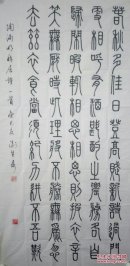 春秋多佳日登高賦新詩過門
更相呼有酒斟酌之農務各自
歸閒暇輒相思相思則披衣言
笑無厭時此理將不勝無為忽
去茲衣食當須紀力耕不吾欺
陶淵明移居詩一首